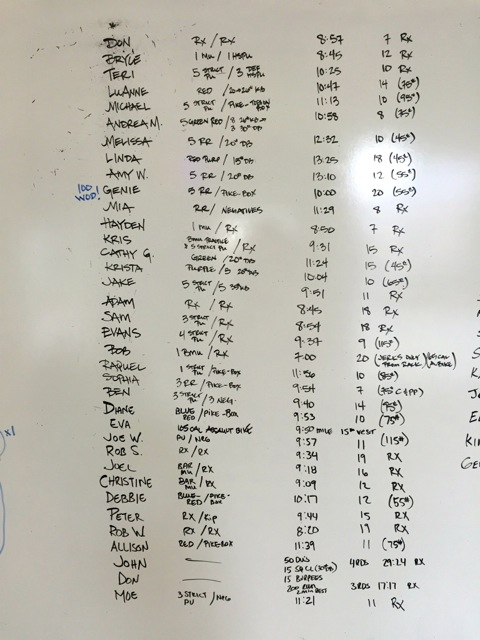 DON RX / RX 8:57 7 RX
BRYCE 1 MU / 1 HSPU 8:45 12 RX
TERI 5 STRICT PU / 3 DEF HSPU 10:25 10 RX
LUANNE RED / 20# KB 10:47 14 (75#)
MICHAEL 5 STRICT PU / PIKE- BOX 11:13 10 (95#)
ANDREA M. 5 GREEN RED / 3 30# DB 10:58 8 (75#)
MELISSA 5 RR / 20# DB 12:32 10 (45#)
LINDA RED PURP / 15# DB 13:25 18 (45#)
AMY W. 5 RR / 20# DB 13:10 12 (55#)
100 WOD! GENIE 5 RR / PIKE-BOX 10:00 20 (55#)
MIA RR / NEGATIVES 11:29 8 RX
HAYDEN 1 MU / RX 8:50 7 RX
KRIS 5 STRICT PU / RX 9:31 15 RX
CATHY G. GREEN / 20# DB 11:24 15 (45#)
KRISTA PURPLE / 5 20# DB 10:04 10 (65#)
JAKE 5 STRICT PU / 5 35# DB 9:51 11 RX
ADAM RX / RX 8:45 18 RX
SAM 3 STRICT PU / RX 8:54 18 RX
EVANS 4 STRICT PU / RX 9:37 9 (115#)
BOB 1 BMU / RX 7:00 20 (JERKS ONLY FROM RACK)
RAQUEL 1 STRICT PU / PIKE-BOX 11:56 10 (85#)
SOPHIA 3 RR / PIKE-BOX 9:54 7
BEN 3 STRICT PU / 3 NEG. 9:40 14 (95#)
DIANE BLUE RED / PIKE-BOX 9:53 10 (75#)
EVA 105 CAL ASSAULT BIKE 9:50 MILE 15# VEST
JOE W. PU / NEG 9:57 11 (115#)
ROB S. RX / RX 9:34 19 RX
JOEL BAR MU / RX 9:18 16 RX
CHRISTINE BAR MU / RX 9:09 12 RX
DEBBIE BLUE-RED / PIKE-BOX 10:17 12 (55#)
PETER RX / KIP 9:44 15 RX
ROB W RX / RX 8:20 19 RX
ALLISON RED / PIKEBOX 11:39 11 (75#)
JOHN 50 DU'S 15 SQ CL 4 RDS 29:24 RX
DON 15 BURPEES 200 RUN 2 MIN REST 3 RDS 17:17 RX
MOE 3 STRICT PU / NEG 11:21 11 RX